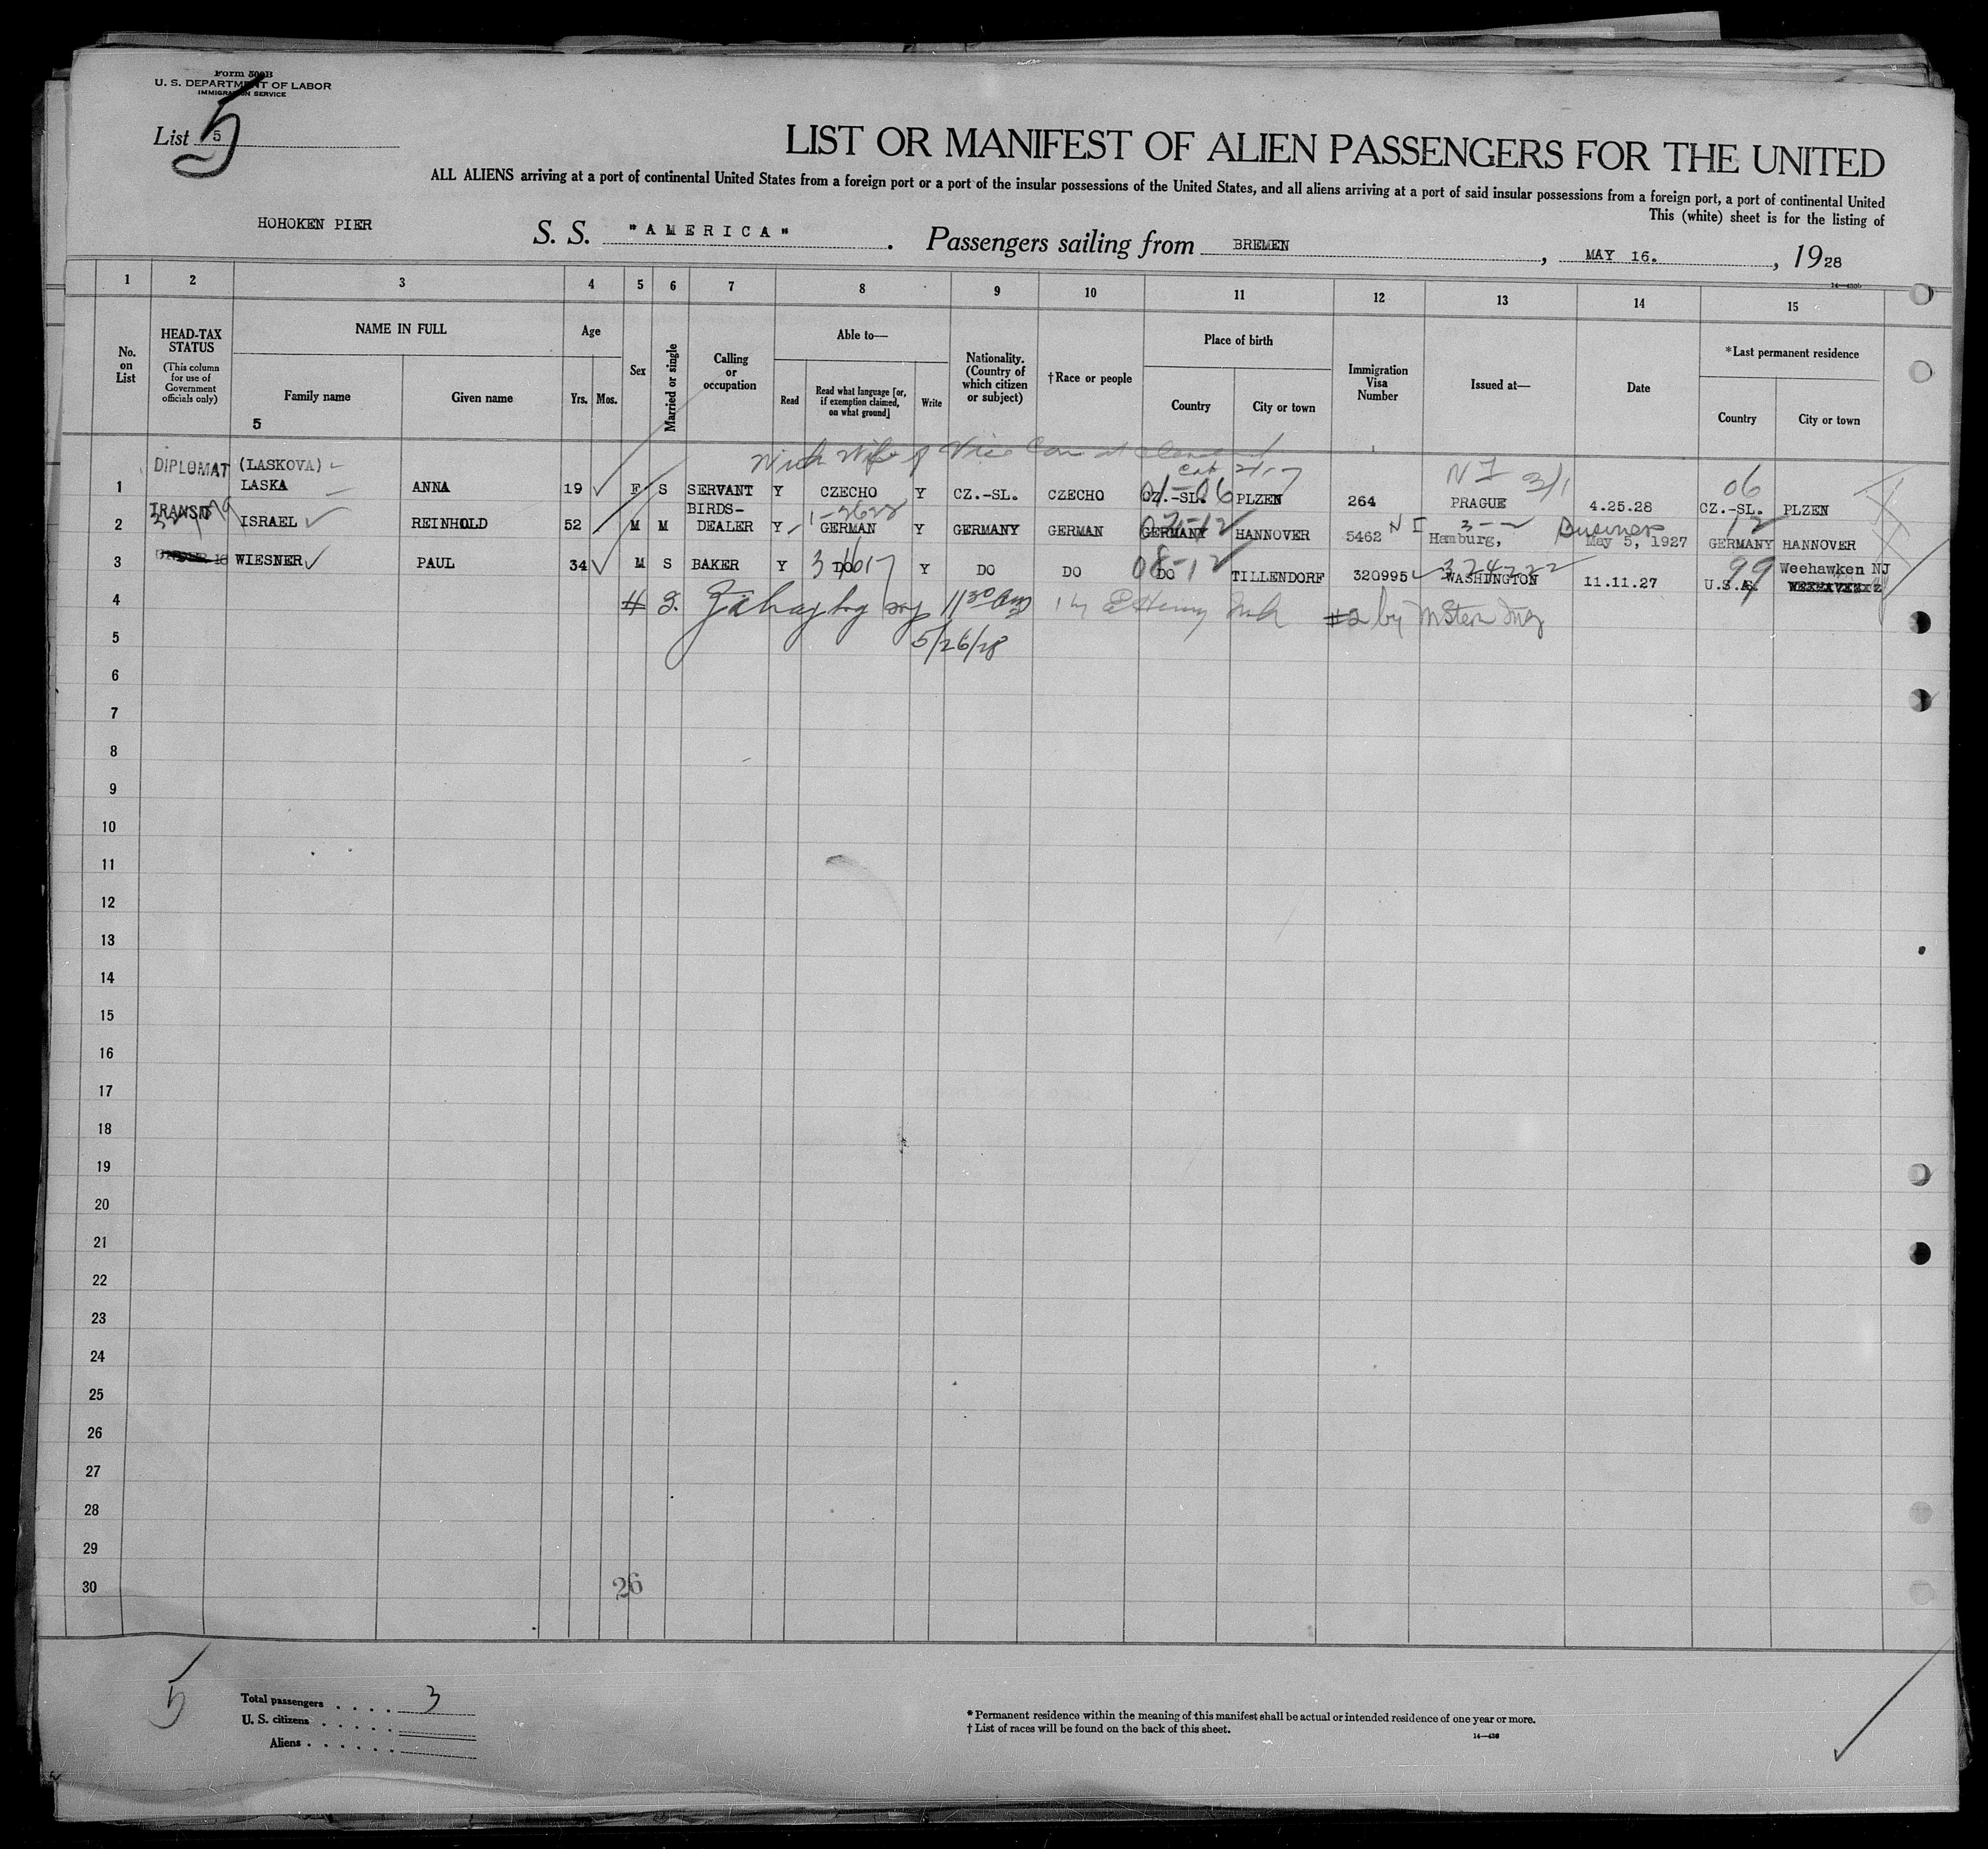 Form 500B
U. S. DEPARTMENT OF LABOR
IMMIGRATION SERVICE
List 5
5
LIST OR MANIFEST OF ALIEN PASSENGERS FOR THE UNITED
ALL ALIENS arriving at a port of continental United States from a foreign port or a port of the insular possessions of the United States, and all aliens arriving at a port of said insular possessions from a foreign port, a port of continental United
This (white) sheet is for the listing of
HOHOKEN PIER S. S. "AMERICA". Passengers sailing from BREMEN, MAY 16., 1928
1 2 3 4 5 6 7 8 9 10 11 12 13 14 15
No. on List
HEAD-TAX STATUS
(This column for use of Government officials only)
NAME IN FULL
Family name
Given name
5
Age
Yrs. Mos.
Sex
Married or single
Calling or occupation
Able to—
Read
Read what language [or, if exemption claimed, on what ground]
Write
Nationality. (Country of which citizen or subject)
†Race or people
Place of birth
Country
City or town
Immigration Visa Number
Issued at—
Date
*Last permanent residence
Country
City or town
With Wife of Vice Con at
DIPLOMAT (LASKOVA) NI 3/1 06
1 LASKA ANNA 19 F S SERVANT Y CZECHO Y CZ.-SL. CZECHO CZ.-SL. PLZEN 264 PRAGUE 4.25.28 CZ.-SL. PLZEN
TRANSIT BIRDS- 1-2628 NI 3-- Business 12
2 ISRAEL REINHOLD 52 M M DEALER Y GERMAN Y GERMANY GERMAN GERMANY HANNOVER 5462 Hamburg, May 5, 1927 GERMANY HANNOVER
08-12 99 Weehawken NJ
3 WIESNER PAUL 34 M S BAKER Y DO Y DO DO DO TILLENDORF 320995 WASHINGTON 11.11.27 U.S.A.
4 # 3. 11 30 #2 by
5 5/26/28
6
7
8
9
10
11
12
13
14
15
16
17
18
19
20
21
22
23
24
25
26
27
28
29
30
26
5
Total passengers . . . . . 3
U. S. citizens . . . . . .
Aliens . . . . . . .
* Permanent residence within the meaning of this manifest shall be actual or intended residence of one year or more.
† List of races will be found on the back of this sheet.